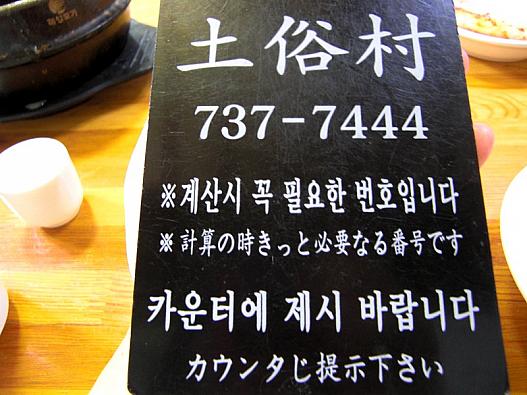 土俗村
737-7444
※계산시 꼭 필요한 번호입니다
※計算の時きっと必要なる番号です
카운터에 제시 바랍니다
カウンタじ提示下さい